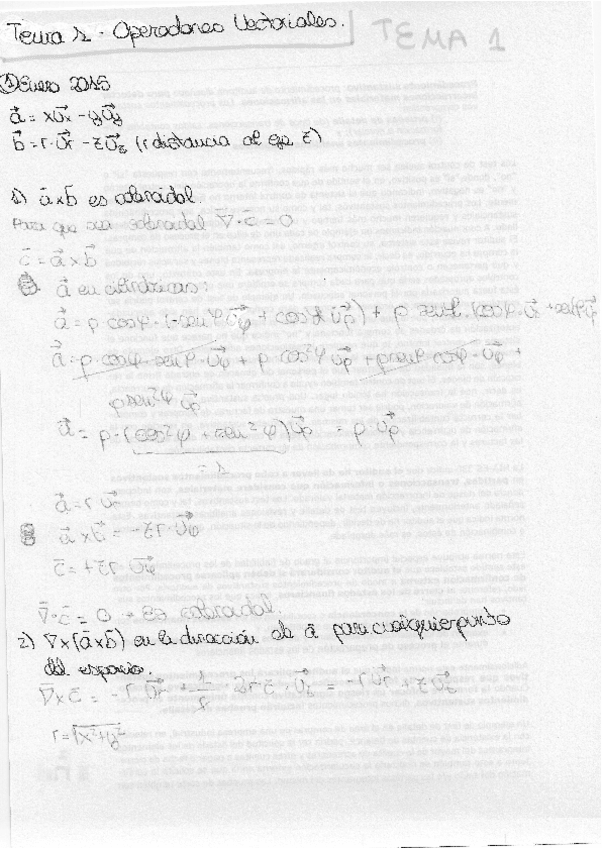 Tema 1.- Operadores Vectoriales.
TEMA 1
① Enero 2015
a⃗ = xu⃗x - yu⃗y
b⃗ = r·u⃗r - zu⃗z (r distancia al eje z)
1) a⃗xb⃗ es solenoidal.
Para que sea solenoidal ∇⃗·c⃗ = 0
c⃗ = a⃗xb⃗
a⃗ en cilíndricas:
a⃗ = ρ cosφ·(-senφ u⃗φ + cosφ u⃗ρ) + ρ senφ·(cosφ·u⃗
a⃗ = ρ·cosφ·senφ·u⃗φ + ρ cos²φ u⃗ρ + ρ senφ cosφ·u⃗φ +
ρ sen²φ u⃗ρ
a⃗ = ρ·(cos²φ + sen²φ)u⃗ρ = ρ u⃗ρ
= 1
a⃗ = r u⃗r
a⃗ x b⃗ = -zr·u⃗φ
c⃗ = +zr·u⃗φ
∇⃗·c⃗ = 0 → Es solenoidal.
2) ∇x(a⃗xb⃗) en la dirección de a⃗ para cualquier punto
del espacio.
∇⃗xc⃗ = -r u⃗r + 1/r · 2rz·u⃗z = -r u⃗r + z u⃗z
r = √x²+y²